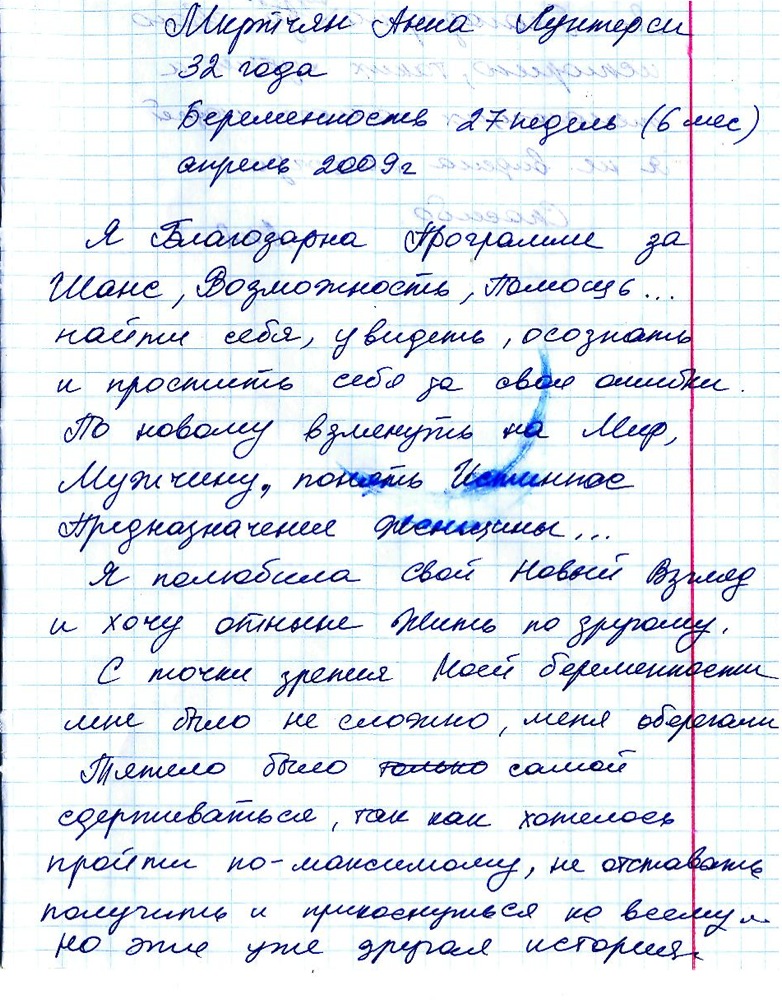 Мкртчян Анна Лунтерси
32 года
Беременность 27 недель (6 мес)
апрель 2009г
Я Благодарна Программе за
Шанс, Возможность, Помощь...
найти себя, увидеть, осознать
и простить себя за свои ошибки.
По новому взглянуть на Мир,
Мужчину, понять Истинное
Предназначение Женщины...
Я полюбила свой Новый Взгляд
и хочу отныне Жить по другому.
С точки зрения Моей беременности
мне было не сложно, меня оберегали
Тяжело было только самой
сдерживаться, так как хотелось
пройти по-максимому, не отставать
получить и прикоснуться ко всему..
но это уже другая история.